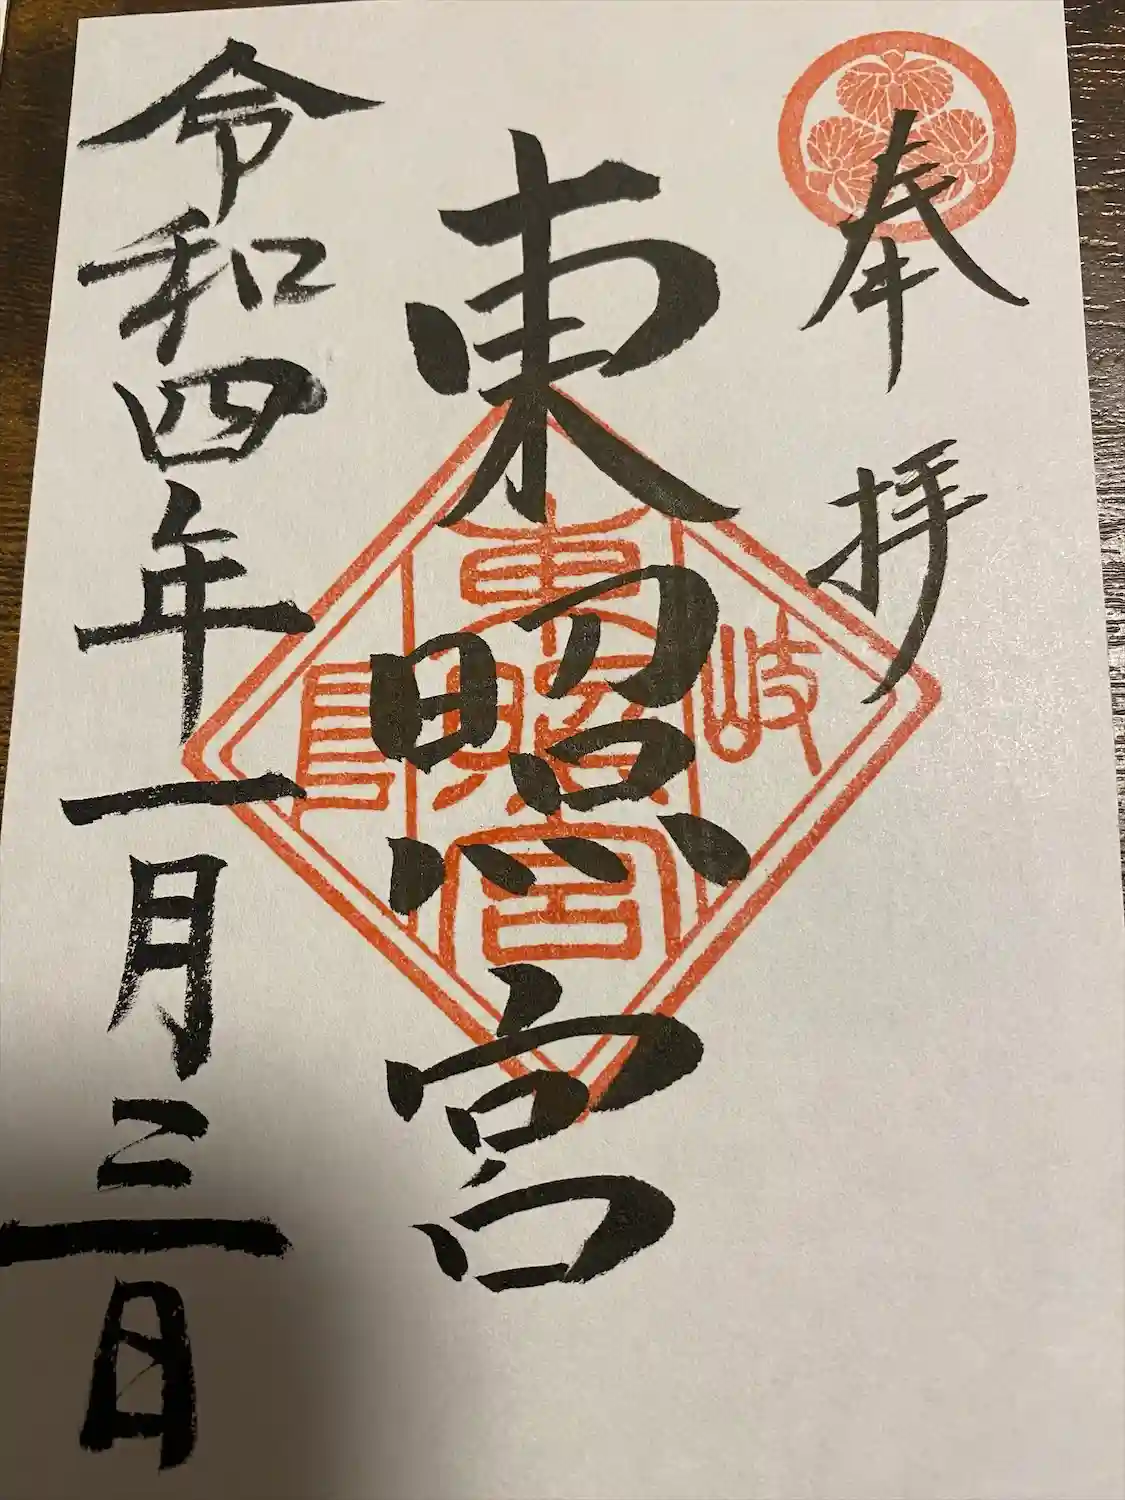 奉拝
東照宮
岐
東照宮
令和四年一月三日